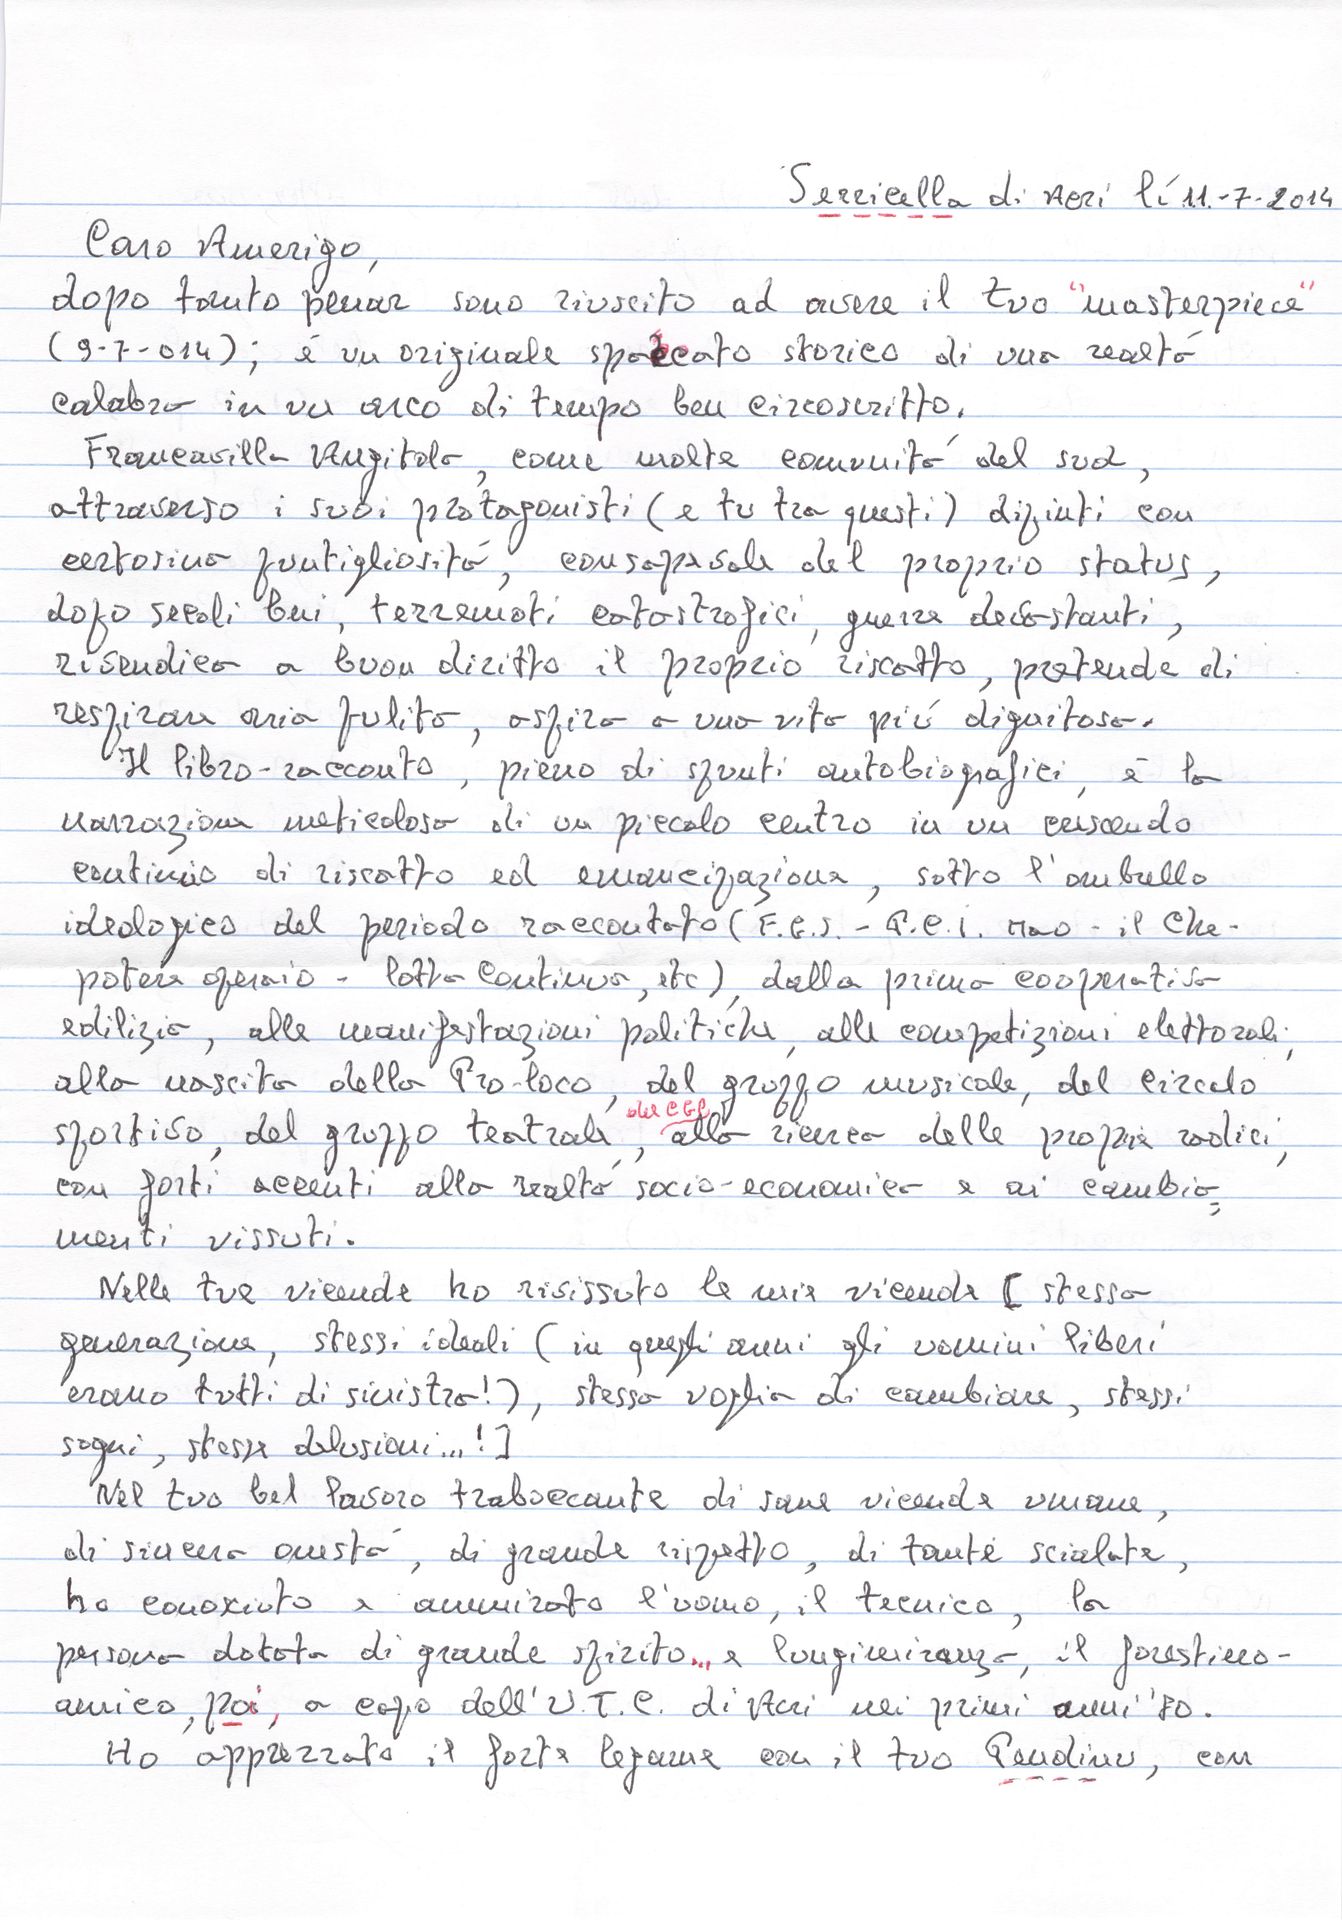 Serricella di Acri lì 11-7-2014
Caro Amerigo,
dopo tanto penar sono riuscito ad avere il tuo "masterpiece"
(9-7-014); è un originale spaccato storico di una realtà
calabra in un arco di tempo ben circoscritto.
Francavilla Angitola, come molte comunità del sud,
attraverso i suoi protagonisti (e tu tra questi) dipinti con
certosina puntigliosità, consapevole del proprio status,
dopo secoli bui, terremoti catastrofici, guerre devastanti,
rivendica a buon diritto il proprio riscatto, pretende di
respirare aria pulita, aspira a una vita più dignitosa.
Il libro-racconto, pieno di spunti autobiografici, è la
narrazione meticolosa di un piccolo centro in un crescendo
continuo di riscatto ed emancipazione, sotto l'ombrello
ideologico del periodo raccontato (F.G.S. - P.C.I. Mao - il Che -
potere operaio - lotta continua, etc), dalla prima cooperativa
edilizia, alle manifestazioni politiche, alle competizioni elettorali,
alla nascita della Pro-loco, del gruppo musicale, del circolo
sportivo, del gruppo teatrale, del CGP, alla ricerca delle proprie radici,
con forti accenti alla realtà socio-economica e ai cambia=
menti vissuti.
Nelle tue vicende ho rivissuto le mie vicende [stessa
generazione, stessi ideali (in quegli anni gli uomini liberi
erano tutti di sinistra!), stessa voglia di cambiare, stessi
sogni, stesse delusioni...!]
Nel tuo bel lavoro traboccante di sane vicende umane,
di sincera onestà, di grande rispetto, di tante scialate,
ho conosciuto e ammirato l'uomo, il tecnico, la
persona dotata di grande spirito... e lungimiranza, il forestiero-
amico, poi, a capo dell'U.T.C. di Acri nei primi anni '80.
Ho apprezzato il forte legame con il tuo Pendinu, con